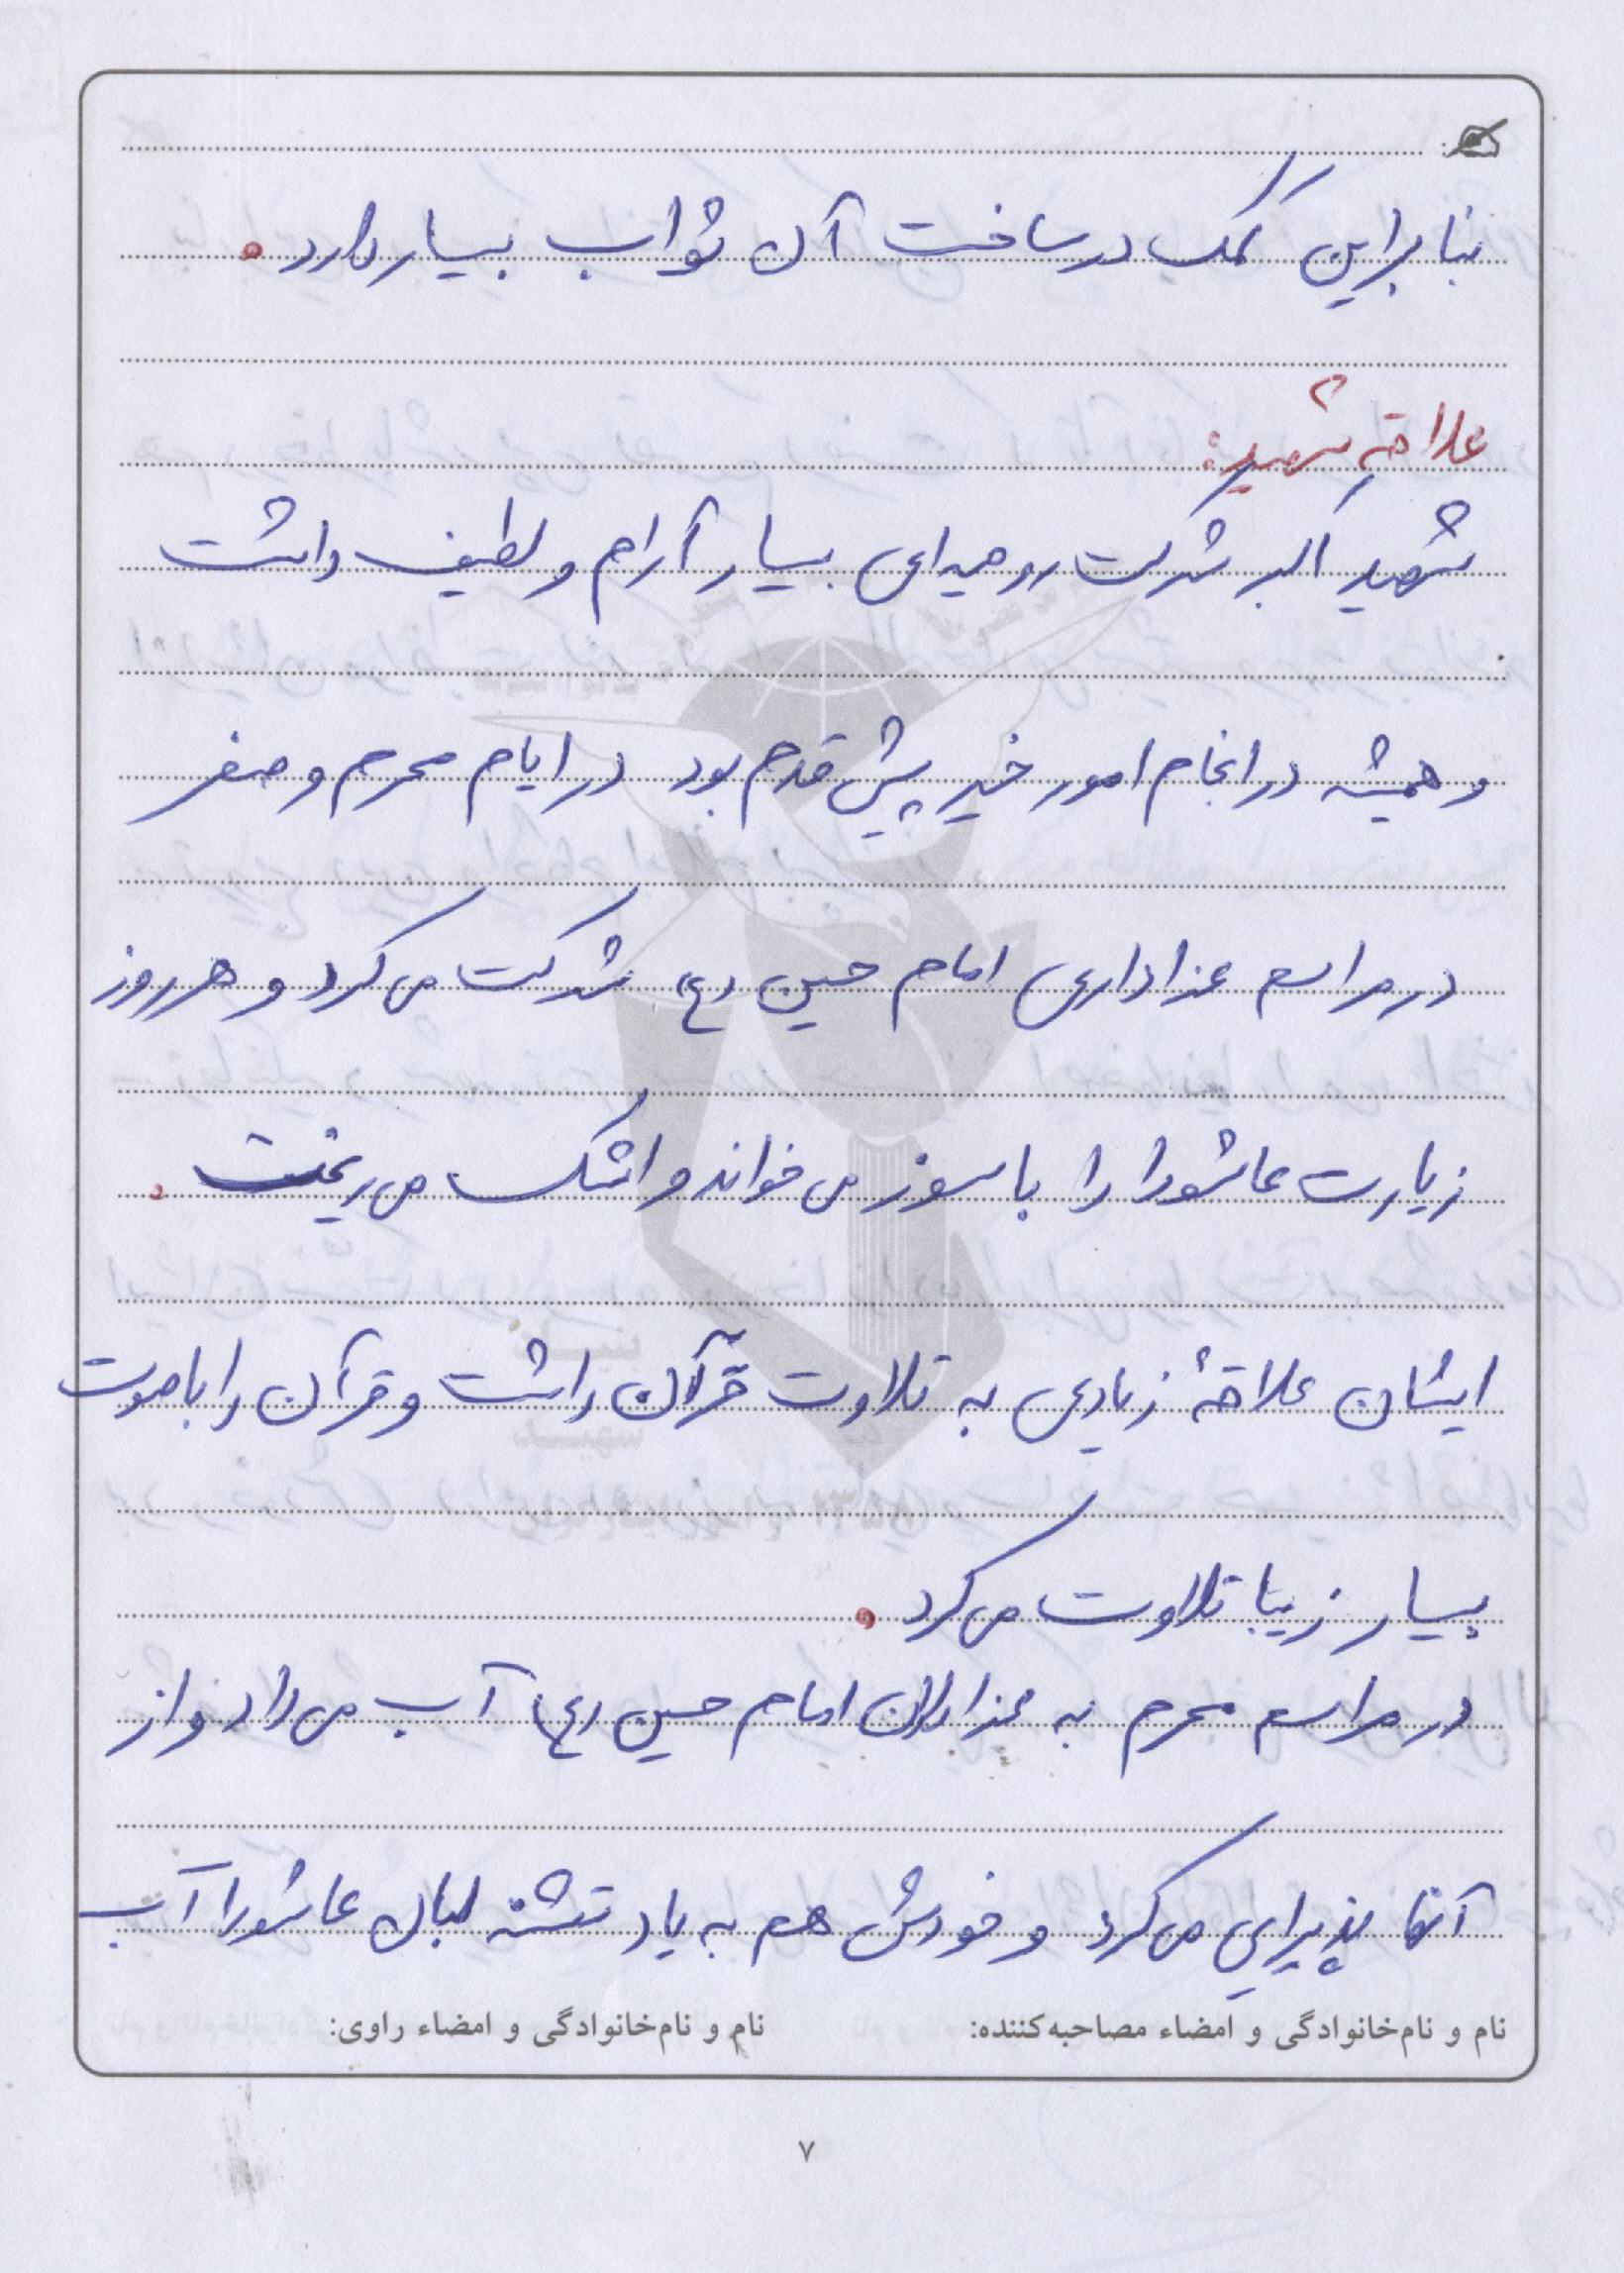 بنابراین کمک در ساخت آن ثواب بسیار دارد.
علاقهٔ شهید:
شهید اکبر شرکت روحیه‌ای بسیار آرام و لطیف داشت
و همیشه در انجام امور خیر پیش قدم بود در ایام محرم و صفر
در مراسم عزاداری امام حسین (ع) شرکت می‌کرد و هر روز
زیارت عاشورا را با سوز می‌خواند و اشک می‌ریخت.
ایشان علاقهٔ زیادی به تلاوت قرآن داشت و قرآن را با صوت
بسیار زیبا تلاوت می‌کرد.
در مراسم محرم به عزاداران امام حسین (ع) آب می‌داد و از
آنها پذیرایی می‌کرد و خودش هم به یاد تشنه لبان عاشورا آب
نام و نام‌خانوادگی و امضاء مصاحبه‌کننده: نام و نام‌خانوادگی و امضاء راوی:
۷